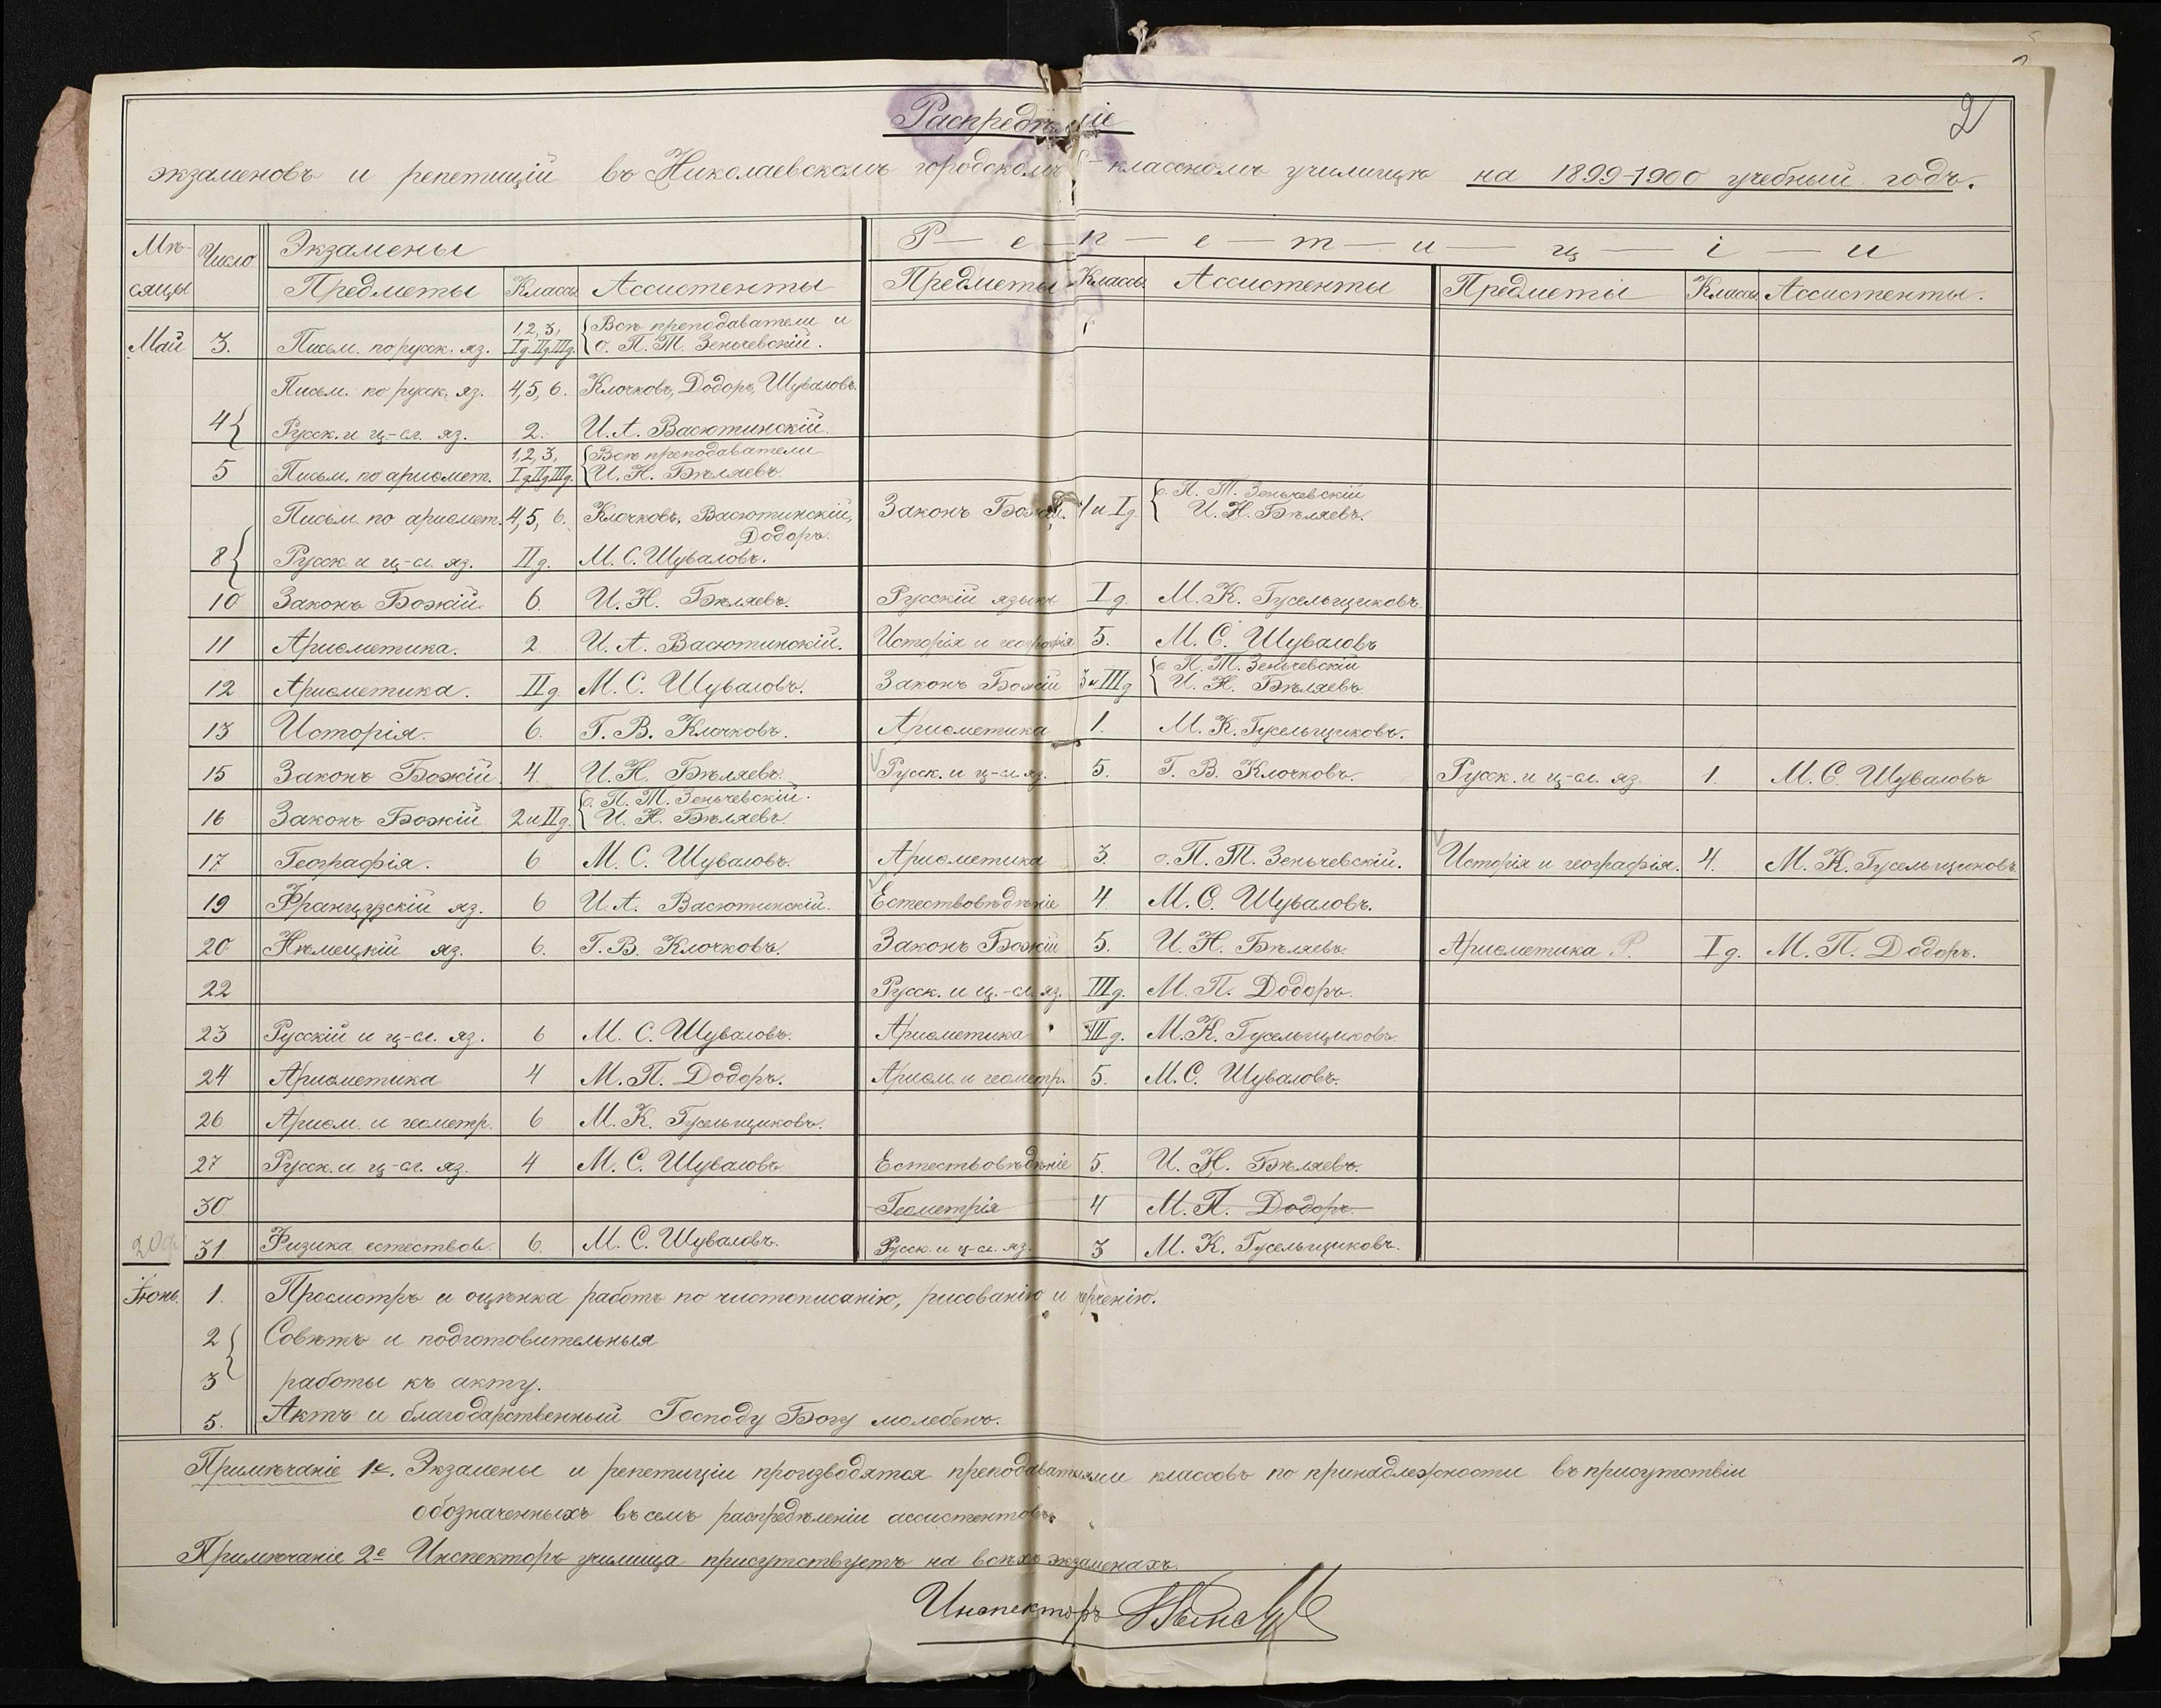 2
Распредѣленіе
экзаменовъ и репетицій въ Николаевскомъ городскомъ 6-классномъ училищѣ на 1899-1900 учебный годъ.
Мѣсяцы Число Экзамены Репетиціи
Предметы Классы Ассистенты Предметы Классы Ассистенты Предметы Классы Ассистенты.
Май 3. Письм. по русск. яз. 1, 2, 3, Iд. IIд. IIIд. Всѣ преподаватели и о. П. Т. Зеньчевскій.
Письм. по русск. яз. 4, 5, 6. Клочковъ, Додоръ, Шуваловъ.
4 Русск. и ц-сл. яз. 2. И. А. Васютинскій.
5 Письм. по ариѳмет. 1, 2, 3, Iд. IIд. IIIд. Всѣ преподаватели И. Н. Бѣляевъ
Письм. по ариѳмет. 4, 5, 6. Клочковъ, Васютинскій, Додоръ. Законъ Божій. 1 и Iд. о. П. Т. Зеньчевскій И. Н. Бѣляевъ.
8 Русск. и ц-сл. яз. IIд. М. С. Шуваловъ.
10 Законъ Божій. 6. И. Н. Бѣляевъ. Русскій языкъ Iд. М. К. Гусельщиковъ.
11 Ариѳметика. 2. И. А. Васютинскій. Исторія и географія 5. М. С. Шуваловъ
12 Ариѳметика. IIд. М. С. Шуваловъ. Законъ Божій 3 и IIIд о. П. Т. Зеньчевскій И. Н. Бѣляевъ
13 Исторія. 6. Г. В. Клочковъ. Ариѳметика 1. М. К. Гусельщиковъ.
15 Законъ Божій. 4. И. Н. Бѣляевъ. Русск. и ц-сл. яз. 5. Г. В. Клочковъ. Русск. и ц-сл. яз. 1. М. С. Шуваловъ
16 Законъ Божій 2 и IIд. о. П. Т. Зеньчевскій. И. Н. Бѣляевъ.
17 Географія. 6 М. С. Шуваловъ. Ариѳметика 3. о. П. Т. Зеньчевскій. Исторія и географія. 4. М. К. Гусельщиковъ.
19 Французскій яз. 6 И. А. Васютинскій. Естествовѣдѣніе 4 М. С. Шуваловъ.
20 Нѣмецкій яз. 6. Г. В. Клочковъ. Законъ Божій 5. И. Н. Бѣляевъ. Ариѳметика Р. Iд. М. П. Додоръ.
22 Русск. и ц.-сл. яз. IIIд. М. П. Додоръ.
23 Русскій и ц-сл. яз. 6 М. С. Шуваловъ. Ариѳметика IIIд. М. К. Гусельщиковъ.
24 Ариѳметика 4 М. П. Додоръ. Ариѳм. и геометр. 5. М. С. Шуваловъ.
26 Ариѳм. и геометр. 6 М. К. Гусельщиковъ.
27 Русск. и ц-сл. яз. 4 М. С. Шуваловъ. Естествовѣдѣніе 5. И. Н. Бѣляевъ.
30 Геометрія 4 М. П. Додоръ.
31 Физика естествов. 6. М. С. Шуваловъ. Русск. и ц-сл. яз. 3 М. К. Гусельщиковъ.
Іюнь. 1. Просмотръ и оцѣнка работъ по чистописанію, рисованію и черченію.
2 Совѣтъ и подготовительныя
3 работы къ акту.
5. Актъ и благодарственный Господу Богу молебенъ.
Примѣчаніе 1е. Экзамены и репетиціи производятся преподавателями классовъ по принадлежности въ присутствіи
обозначенныхъ въ семъ распредѣленіи ассистентовъ.
Примѣчаніе 2е Инспекторъ училища присутствуетъ на всѣхъ экзаменахъ.
Инспекторъ